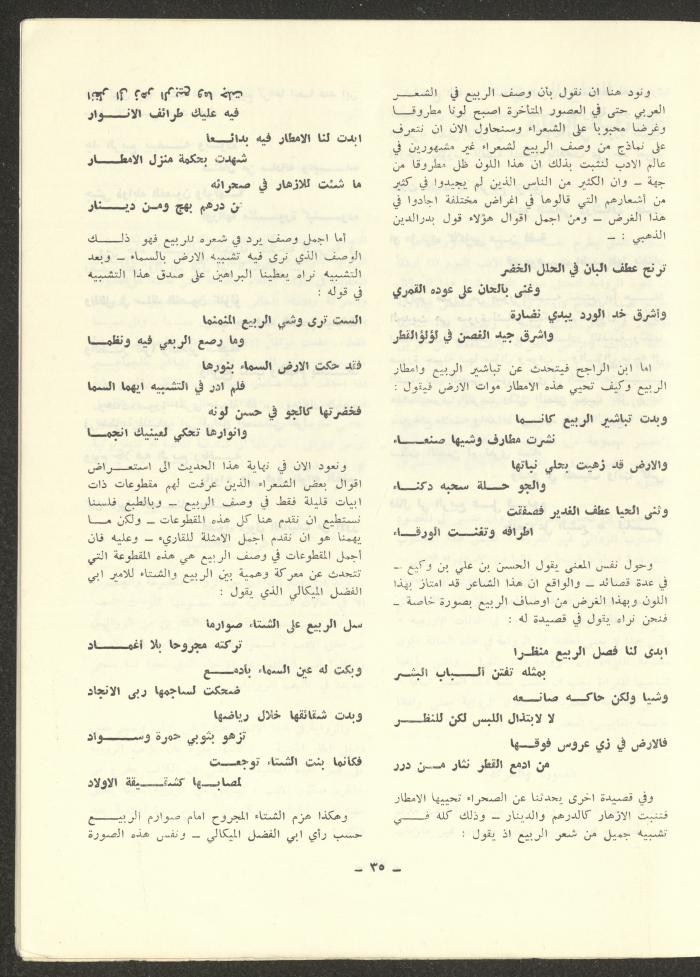 ونود هنا ان نقول بأن وصف الربيع في الشعر
العربي حتى في العصور المتأخرة اصبح لونا مطروقا
وغرضا محبوبا على الشعراء وسنحاول الان ان نتعرف
على نماذج من وصف الربيع لشعراء غير مشهورين في
عالم الادب لنثبت بذلك ان هذا اللون ظل مطروقا من
جهة ــ وان الكثير من الناس الذين لم يجيدوا في كثير
من أشعارهم التي قالوها في اغراض مختلفة اجادوا في
هذا الغرض ــ ومن اجمل اقوال هؤلاء قول بدرالدين
الذهبي : ــ
ترنح عطف البان في الحلل الخضر
وغنى بالحان على عوده القمري
وأشرق خد الورد يبدي نضارة
واشرق جيد الغصن في لؤلؤ القطر
اما ابن الراجح فيتحدث عن تباشير الربيع وامطار
الربيع وكيف تحيي هذه الامطار موات الارض فيقول :
وبدت تباشير الربيع كانما
نشرت مطارف وشيها صنعاء
والارض قد زهيت بحلي نباتها
والجو حلة سحبه دكناء
وثنى الحيا عطف الغدير فصفقت
اطرافه وتغنت الورقاء
وحول نفس المعنى يقول الحسن بن علي بن وكيع ــ
في عدة قصائد ــ والواقع ان هذا الشاعر قد امتاز بهذا
اللون وبهذا الغرض من اوصاف الربيع بصورة خاصة ــ
فنحن نراه يقول في قصيدة له :
ابدى لنا فصل الربيع منظرا
بمثله تفتن ألباب البشر
وشيا ولكن حاكه صانعه
لا لابتذال اللبس لكن للنظر
فالارض في زي عروس فوقها
من ادمع القطر نثار من درر
وفي قصيدة اخرى يحدثنا عن الصحراء تحييها الامطار
فتنبت الازهار كالدرهم والدينار ــ وذلك كله في
تشبيه جميل من شعر الربيع اذ يقول :
انظر الى زهر الربيع وما جلت
فيه عليك طرائف الانوار
ابدت لنا الامطار فيه بدائعا
شهدت بحكمة منزل الامطار
ما شئت للازهار في صحرائه
من درهم بهج ومن دينار
أما اجمل وصف يرد في شعره للربيع فهو ذلك
الوصف الذي نرى فيه تشبيه الارض بالسماء ــ وبعد
التشبيه نراه يعطينا البراهين على صدق هذا التشبيه
في قوله :
الست ترى وشي الربيع المنمنما
وما رصع الربعي فيه ونظما
فقد حكت الارض السماء بنورها
فلم ادر في التشبيه ايهما السما
فخضرتها كالجو في حسن لونه
وانوارها تحكي لعينيك انجما
ونعود الان في نهاية هذا الحديث الى استعراض
اقوال بعض الشعراء الذين عرفت لهم مقطوعات ذات
ابيات قليلة فقط في وصف الربيع ــ وبالطبع فلسنا
نستطيع ان نقدم هنا كل هذه المقطوعات ــ ولكن ما
يهمنا هو ان نقدم اجمل الامثلة للقاريء ــ وعليه فان
أجمل المقطوعات في وصف الربيع هي هذه المقطوعة التي
تتحدث عن معركة وهمية بين الربيع والشتاء للامير ابي
الفضل الميكالي الذي يقول :
سل الربيع على الشتاء صوارما
تركته مجروحا بلا أغماد
وبكت له عين السماء بأدمع
ضحكت لساجمها ربى الانجاد
وبدت شقائقها خلال رياضها
تزهو بثوبي حمرة وسواد
فكأنما بنت الشتاء توجعت
لمصابها كشقيقة الاولاد
وهكذا هزم الشتاء المجروح امام صوارم الربيع
حسب رأي ابي الفضل الميكالي ــ ونفس هذه الصورة
ــ ٣٥ ــ